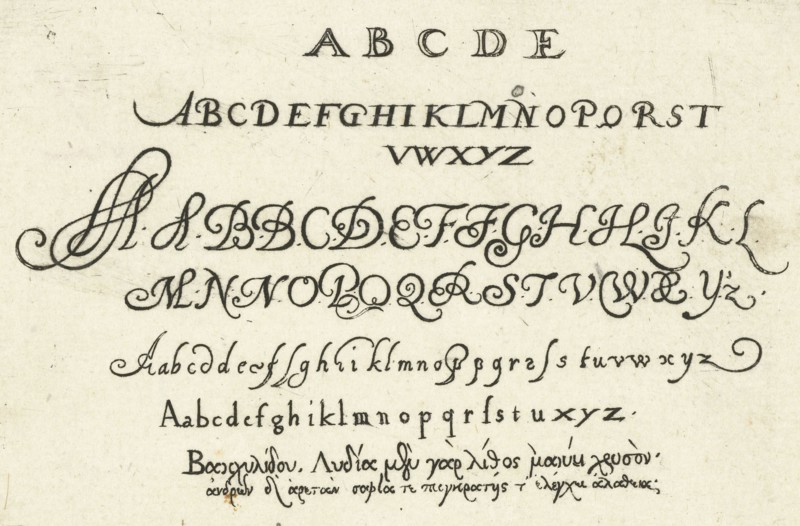 A B C D E
ABCDEFGHIKLMNOPQRST
VWXYZ
A·A·B·B·C·D·E·F·F·G·H·H·I·J·K·L
M·N·N·O·P·Q·Q·R·S·T·V·W·X·Y·z·
Aabcddeefſghhiklmnoppqrsſs tuvw x y z
Aabcdefghiklmnopqrſstuxyz·
Βακχυλίδου. Λυδία μὲν γὰρ λίθος μανύει χρυσόν·
ἀνδρῶν δ' ἀρετὰν σοφία τε παγκρατής τ' ἐλέγχει ἀλάθεια;